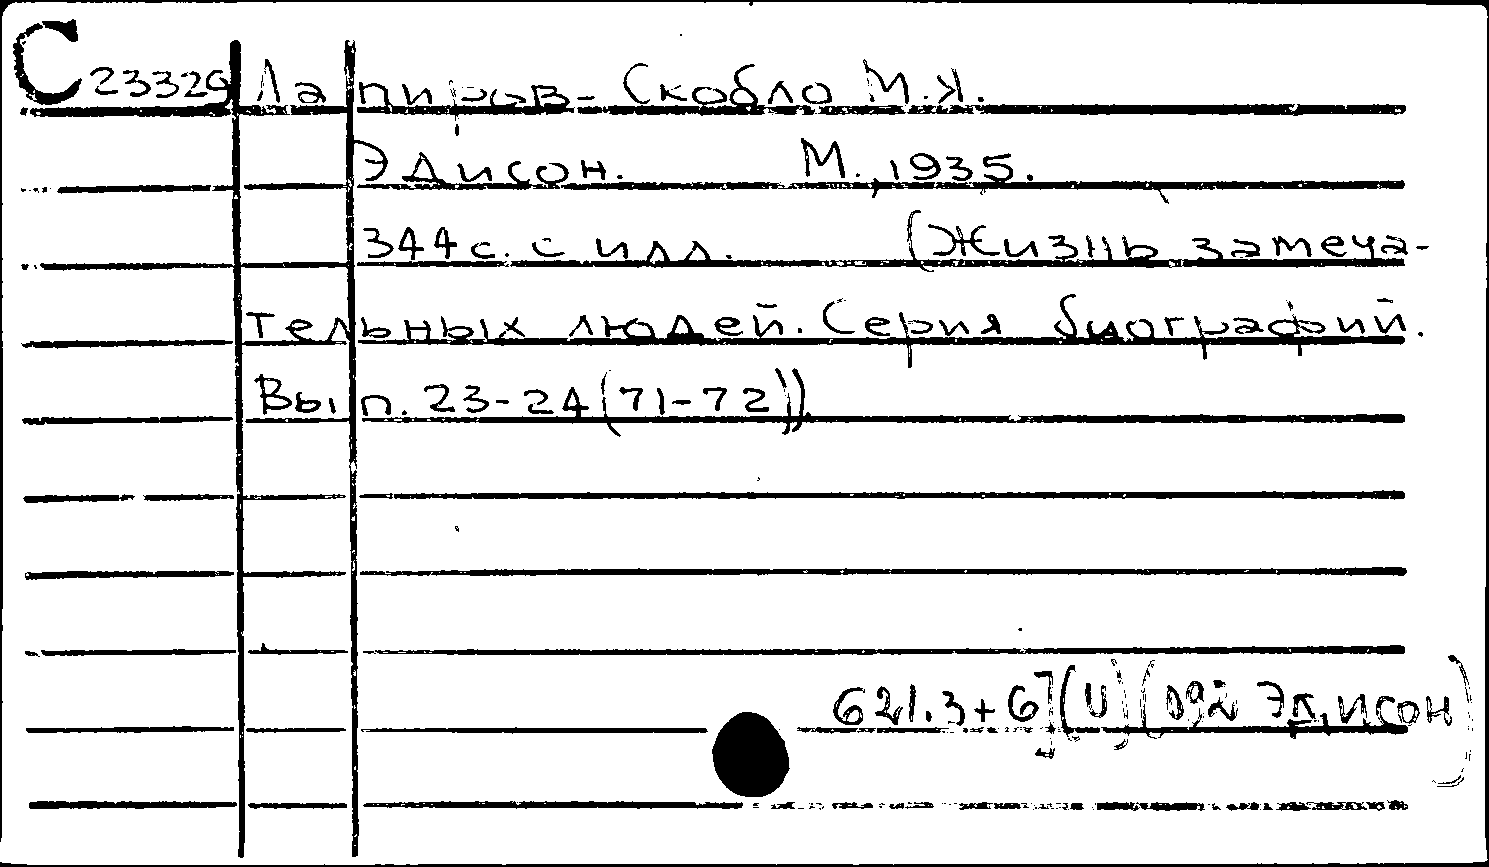 С 23329 Лапиров-Скобло М.Я.
Эдисон. М., 1935.
344с. с илл. (Жизнь замеча-
тельных людей. Серия биографий.
Вып. 23-24(71-72)).
621.3+6](И)(092 Эдисон)